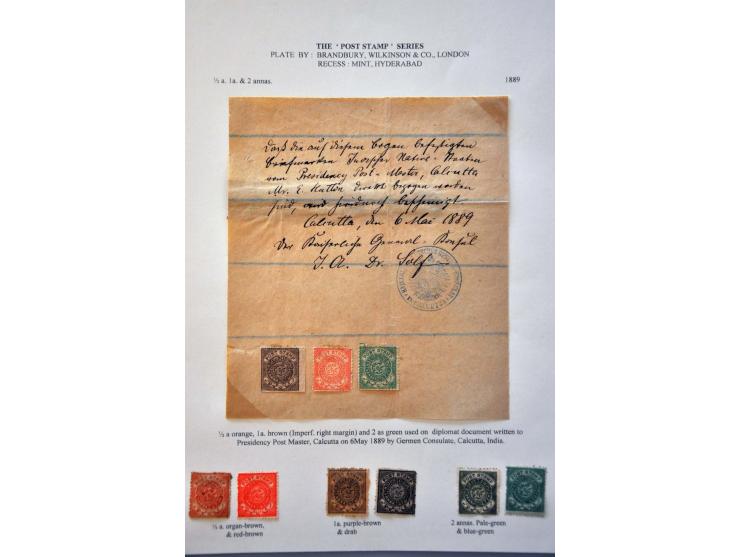 THE ' POST STAMP ' SERIES
PLATE BY : BRANDBURY, WILKINSON & CO., LONDON
RECESS : MINT, HYDERABAD
½ a. 1a. & 2 annas.
1889
Daß die auf diesem Bogen befestigten
Briefmarken Native-Staaten
vom Presidency Post-Master, Calcutta
Mr. E. Hutton direkt bezogen worden
sind, wird hierdurch bescheinigt
Calcutta, den 6 Mai 1889
Der Kaiserliche General-Konsul
I. A. Dr. Solf
POST STAMP
POST STAMP
POST STAMP
½ a orange, 1a. brown (Imperf. right margin) and 2 as green used on diplomat document written to
Presidency Post Master, Calcutta on 6May 1889 by Germen Consulate, Calcutta, India.
POST STAMP
POST STAMP
POST STAMP
POST STAMP
POST STAMP
POST STAMP
½ a. organ-brown,
& red-brown
1a. purple-brown
& drab
2 annas. Pale-green
& blue-green